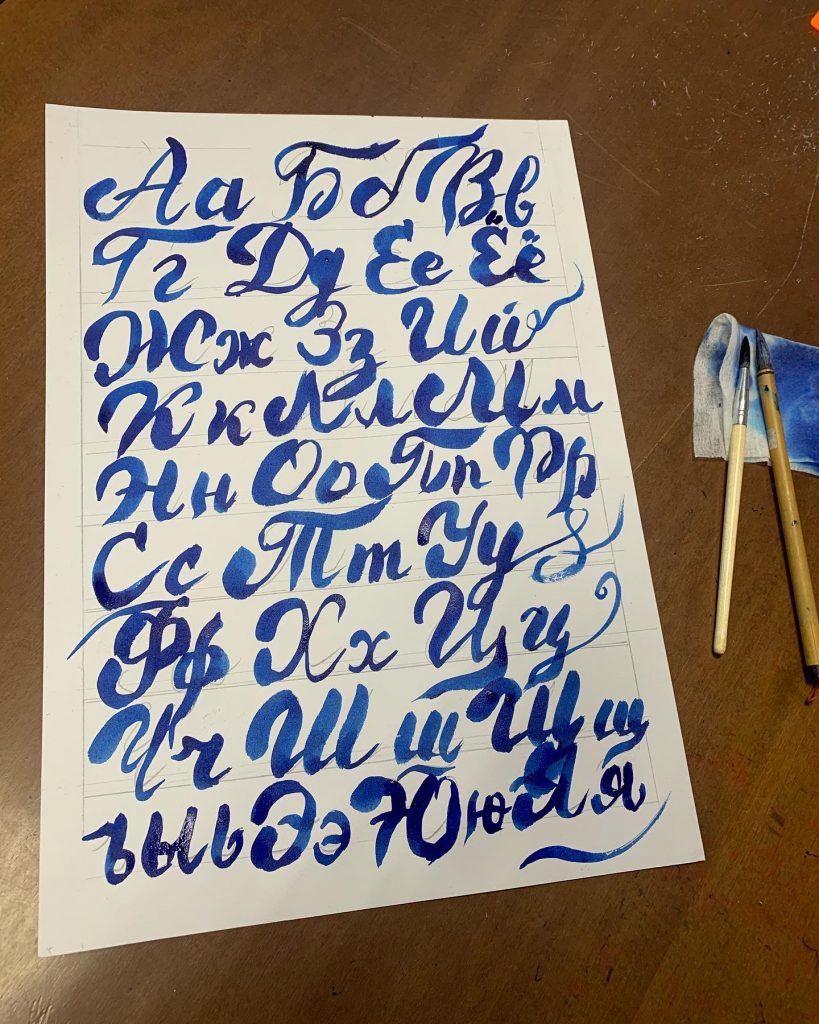 Аа Бб Вв
Гг Дд Ее Ёё
Жж Зз Ий
Кк Лл Мм
Нн Оо Пп Рр
Сс Тт Уу
Фф Хх Цц
Чч Шш Щщ
ъыь Ээ Юю Яя